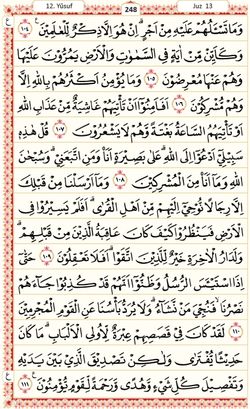 12. Yûsuf 248 Juz 13
وَمَا تَسْـَٔلُهُمْ عَلَيْهِ مِنْ اَجْرٍۜ اِنْ هُوَ اِلَّا ذِكْرٌ لِلْعَالَمٖينَ ﴿١٠٤﴾
وَكَاَيِّنْ مِنْ اٰيَةٍ فِي السَّمٰوَاتِ وَالْاَرْضِ يَمُرُّونَ عَلَيْهَا
وَهُمْ عَنْهَا مُعْرِضُونَ ﴿١٠٥﴾ وَمَا يُؤْمِنُ اَكْثَرُهُمْ بِاللّٰهِ اِلَّا
وَهُمْ مُشْرِكُونَ ﴿١٠٦﴾ اَفَاَمِنُٓوا اَنْ تَأْتِيَهُمْ غَاشِيَةٌ مِنْ عَذَابِ اللّٰهِ
اَوْ تَأْتِيَهُمُ السَّاعَةُ بَغْتَةً وَهُمْ لَا يَشْعُرُونَ ﴿١٠٧﴾ قُلْ هٰذِهٖ
سَبٖيلٖٓي اَدْعُٓوا اِلَى اللّٰهِ عَلٰى بَصٖيرَةٍ اَنَا۬ وَمَنِ اتَّبَعَنٖيۜ وَسُبْحَانَ
اللّٰهِ وَمَٓا اَنَا۬ مِنَ الْمُشْرِكٖينَ ﴿١٠٨﴾ وَمَٓا اَرْسَلْنَا مِنْ قَبْلِكَ
اِلَّا رِجَالًا نُوحٖٓي اِلَيْهِمْ مِنْ اَهْلِ الْقُرٰىۜ اَفَلَمْ يَسٖيرُوا فِي
الْاَرْضِ فَيَنْظُرُوا كَيْفَ كَانَ عَاقِبَةُ الَّذٖينَ مِنْ قَبْلِهِمْۜ
وَلَدَارُ الْاٰخِرَةِ خَيْرٌ لِلَّذٖينَ اتَّقَوْاۜ اَفَلَا تَعْقِلُونَ ﴿١٠٩﴾ حَتّٰٓى
اِذَا اسْتَيْـَٔسَ الرُّسُلُ وَظَنُّٓوا اَنَّهُمْ قَدْ كُذِبُوا جَٓاءَهُمْ
نَصْرُنَاۙ فَنُجِّيَ مَنْ نَشَٓاءُۜ وَلَا يُرَدُّ بَأْسُنَا عَنِ الْقَوْمِ الْمُجْرِمٖينَ
﴿١١٠﴾ لَقَدْ كَانَ فٖي قَصَصِهِمْ عِبْرَةٌ لِاُو۬لِي الْاَلْبَابِۜ مَا كَانَ
حَدٖيثًا يُفْتَرٰى وَلٰكِنْ تَصْدٖيقَ الَّذٖي بَيْنَ يَدَيْهِ
وَتَفْصٖيلَ كُلِّ شَيْءٍ وَهُدًى وَرَحْمَةً لِقَوْمٍ يُؤْمِنُونَ ﴿١١١﴾